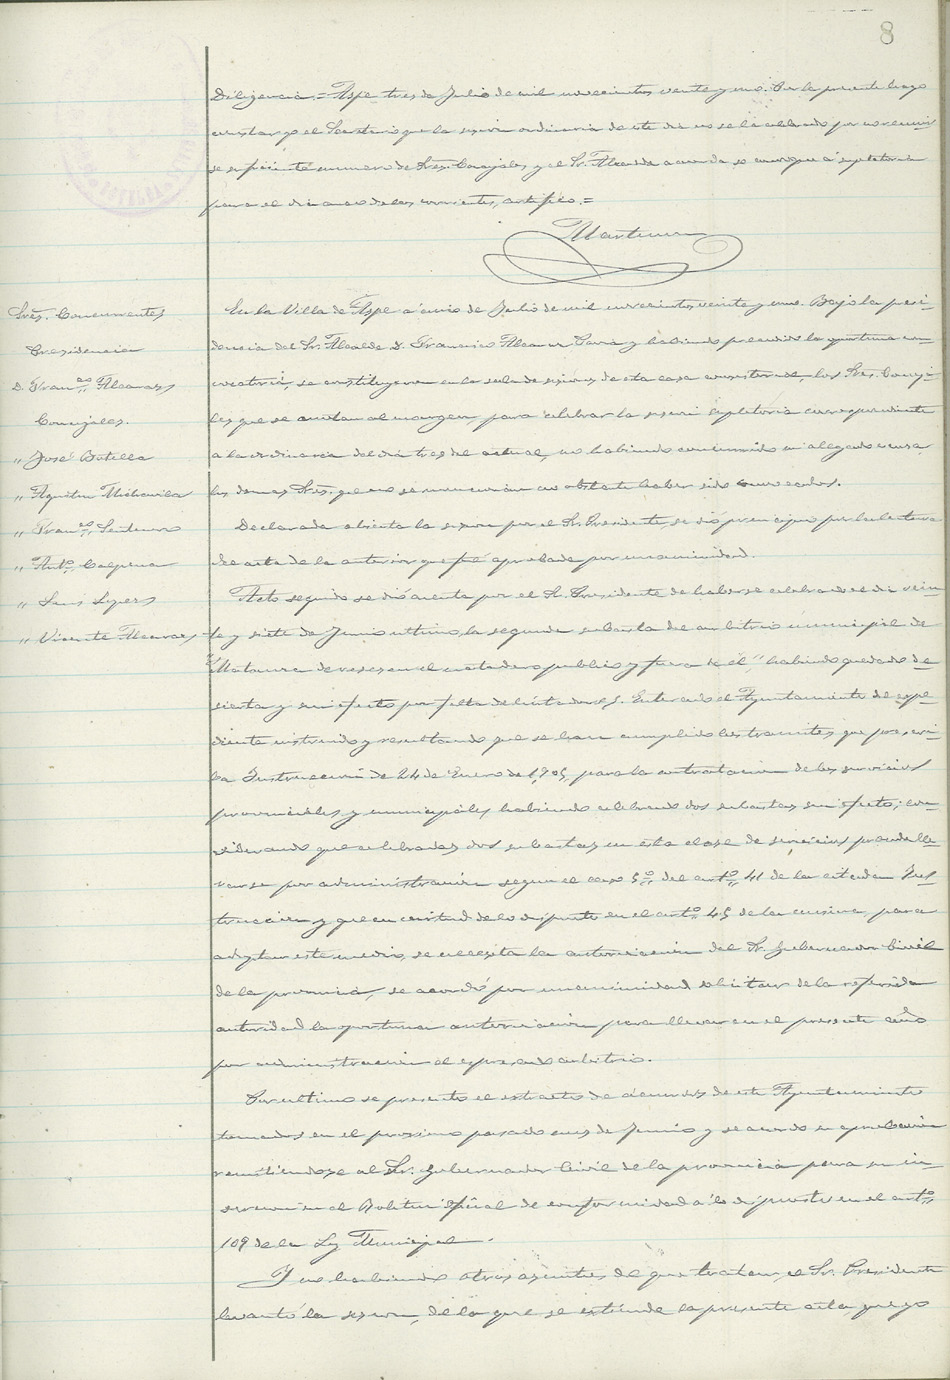 8
Diligencia.= Aspe tres de Julio de mil novecientos veinte y uno. Por la presente hago
constar yo el Secretario que la sesion ordinaria de este dia no se ha celebrado por no reunir
se suficiente numero de Sres. Concejales, y el Sr. Alcalde acuerda se convoque á supletoria
para el dia cinco de los corrientes, certifico.=
Sres. Concurrentes
Presidencia
D. Franco. Alcaraz
Concejales.
" José Botella
" Agustin Mira
" Franco. Cantero
" Anto. Calpena
" Luis Lopez
" Vicente Alcaraz
En la Villa de Aspe á cinco de Julio de mil novecientos veinte y uno. Bajo la presi-
dencia del Sr. Alcalde D. Francisco Alcaraz y habiendo precedido la oportuna con-
vocatoria, se constituyeron en la sala de sesiones de esta casa consistorial, los Sres. Conceja-
les que se anotan al margen, para celebrar la sesion supletoria correspondiente
a la ordinaria del dia tres del actual, no habiendo concurrido ni alegado excusa
los demas Sres. que no se mencionan no obstante haber sido convocados.
Declarada abierta la sesion por el Sr. Presidente, se dió principio por la lectura
del acta de la anterior que fué aprobada por unanimidad.
Acto seguido se dió cuenta por el Sr. Presidente de haberse celebrado el dia vein-
te y siete de Junio ultimo, la segunda subasta del arbitrio municipal de
"Matanza de reses en el matadero publico y fuera de él", habiendo quedado de-
sierta y sin efecto por falta de licitadores. Enterado el Ayuntamiento del expe-
diente instruido y resultando que se han cumplido los tramites que prescri-
be la Instrucción de 24 de Enero de 1905 para la contratacion de los servicios
provinciales y municipales habiendo celebrado dos subastas sin efecto; con-
siderando que celebradas dos subastas en esta clase de servicios puede lle-
varse por administración segun el caso 5º del artº 41 de la citada Ins-
trucción y que en virtud de lo dispuesto en el artº 45 de la misma, para
adoptar este medio, se necesita la autorizacion del Sr. Gobernador Civil
de la provincia, se acordó por unanimidad solicitar de la referida
autoridad la oportuna autorización para llevar en el presente año
por administracion el expresado arbitrio.
Por ultimo se presentó el extracto de acuerdos de este Ayuntamiento
tomados en el proximo pasado mes de Junio y se acordó su aprobacion
remitiendose al Sr. Gobernador Civil de la provincia para su in-
sercion en el Boletin oficial de conformidad á lo dispuesto en el artº
109 de la Ley Municipal.
Y no habiendo otros asuntos de que tratar, el Sr. Presidente
levantó la sesion, de la que se extiende la presente acta, que yo